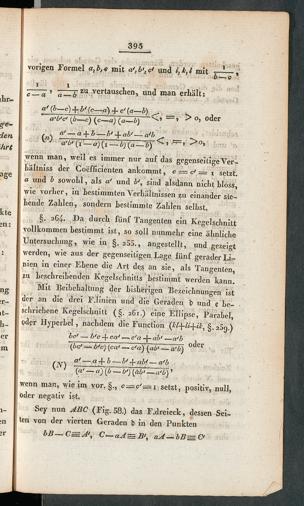 395
vorigen Formel a, b, c mit a', b', c' und i, k, l mit 1/(b—c),
1/(c—a), 1/(a—b) zu vertauschen, und man erhält:
(a'(b—c)+b'(c—a)+c'(a—b))/(a'b'c'(b—c)(c—a)(a—b)) <, =, > 0, oder
(a'—a+b—b'+ab'—a'b)/(a'b'(1—a)(1—b)(a—b)) <, =, > 0,
wenn man, weil es immer nur auf das gegenseitige Ver-
hältniss der Coefficienten ankommt, c = c' = 1 setzt.
a und b sowohl, als a' und b', sind alsdann nicht bloss,
wie vorher, in bestimmten Verhältnissen zu einander ste-
hende Zahlen, sondern bestimmte Zahlen selbst.
§. 264. Da durch fünf Tangenten ein Kegelschnitt
vollkommen bestimmt ist, so soll nunmehr eine ähnliche
Untersuchung, wie in §. 255. angestellt, und gezeigt
werden, wie aus der gegenseitigen Lage fünf gerader Li-
nien in einer Ebene die Art des an sie, als Tangenten,
zu beschreibenden Kegelschnitts bestimmt werden kann.
Mit Beibehaltung der bisherigen Bezeichnungen ist
der an die drei F.linien und die Geraden d und e be-
schriebene Kegelschnitt (§. 261.) eine Ellipse, Parabel,
oder Hyperbel, nachdem die Function (kl+li+ik, §. 259.)
(bc'—b'c+ca'—c'a+ab'—a'b)/((bc'—b'c)(ca'—c'a)(ab'—a'b)) oder
(N) (a'—a+b—b'+ab'—a'b)/((a'—a)(b—b')(ab'—a'b)),
wenn man, wie im vor. §., c=c'=1 setzt, positiv, null,
oder negativ ist.
Sey nun ABC (Fig. 58.) das F.dreieck, dessen Sei-
ten von der vierten Geraden d in den Punkten
bB—C≡A', C—aA≡B', aA—bB≡C'